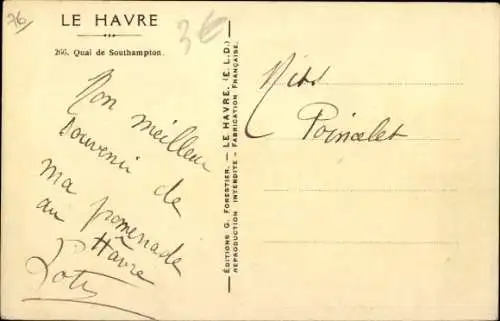 76
LE HAVRE
3€
266. Quai de Southampton.
Mon meilleur
souvenir de
ma promenade
au Havre
ÉDITIONS G. FORESTIER. — LE HAVRE, (E.L.D.)
REPRODUCTION INTERDITE - FABRICATION FRANÇAISE.
Poincelet